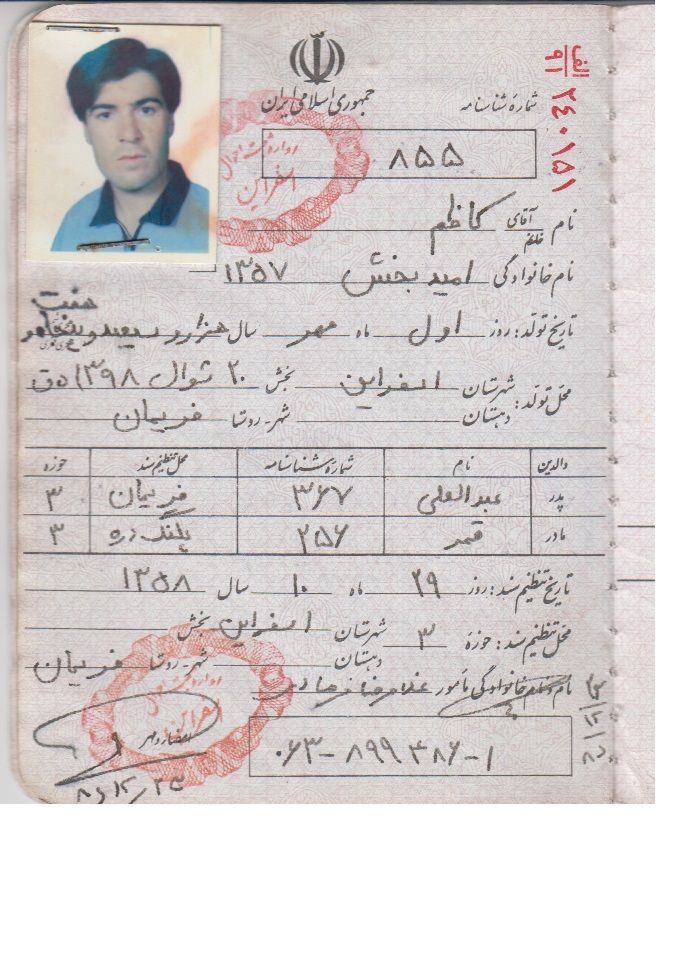 جمهوری اسلامی ایران
شمارهٔ شناسنامه
الف
۹۱
۲۴۰۱۵۱
۸۵۵
نام آقای خانم کاظم
نام خانوادگی امید بخش ۱۳۵۷
تاریخ تولد: روز اول ماه مهر سال هزار و سیصد و پنجاه و هفت
محل تولد: شهرستان اسفراین بخش ۲۰ شوال ۱۳۹۸ ه ق
دهستان شهر-روستا فریمان
والدین نام شمارهٔ شناسنامه محل تنظیم سند حوزه
پدر عبدالعلی ۳۶۷ فریمان ۳
مادر قمر ۲۵۶ پلنگ دره ۳
تاریخ تنظیم سند: روز ۲۹ ماه ۱۰ سال ۱۳۵۸
محل تنظیم سند: حوزهٔ ۳ شهرستان اسفراین بخش
دهستان شهر-روستا فریمان
نام خانوادگی مأمور غلامرضا
امضا و مهر
۰۶۳-۸۹۹۴۸۶-۱